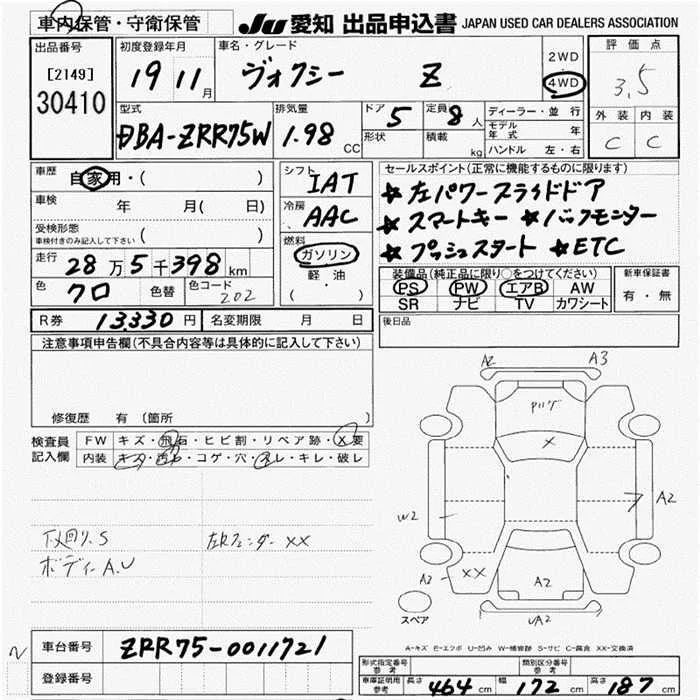 車内保管・守衛保管
JU 愛知 出品申込書 JAPAN USED CAR DEALERS ASSOCIATION
出品番号
[2149]
30410
初度登録年月
19 11月
車名・グレード
ヴォクシー Z
2WD
4WD
評価点
3.5
外装 内装
C C
型式
DBA-ZRR75W
排気量
1.98 CC
ドア 5
形状
定員 8人
積載 kg
ディーラー・並行
モデル年式 年
ハンドル 左・右
車歴
自家用・( )
車検 年 月( 日)
受検形態
車検付きのみ記入して下さい ( )
走行 28万5千398km
色 クロ 色替 色コード 202
シフト IAT
冷房 AAC
燃料
ガソリン
軽・油
( ・ )
セールスポイント(正常に機能するものに限ります)
★左パワースライドドア
★スマートキー ★バックモニター
★プッシュスタート ★ETC
装備品(純正品に限り○をつけてください)
PS PW エアB AW
SR ナビ TV カワシート
新車保証書
有・無
R券 13,330円 名変期限 月 日
後日品
注意事項申告欄(不具合内容等は具体的に記入して下さい)
修復歴 有 (箇所
検査員
記入欄
FW キズ・飛石・ヒビ割・リペア跡・X要
内装 キズ・汚レ・コゲ・穴・スレ・キレ・破レ
下廻り.S 左Rフェンダー XX
ボディーA.U
A2 A3
X
W2 A2
A3 XX
A2
UA2
スペア
A-キズ E-エクボ U-凹み W-補修跡 S-サビ C-腐食 XX-交換済
車台番号 ZRR75-0011721
登録番号
形式指定番号
参考
類別区分番号
参考
車庫証明用
参考
長さ 464cm 幅 172cm 高さ 187cm